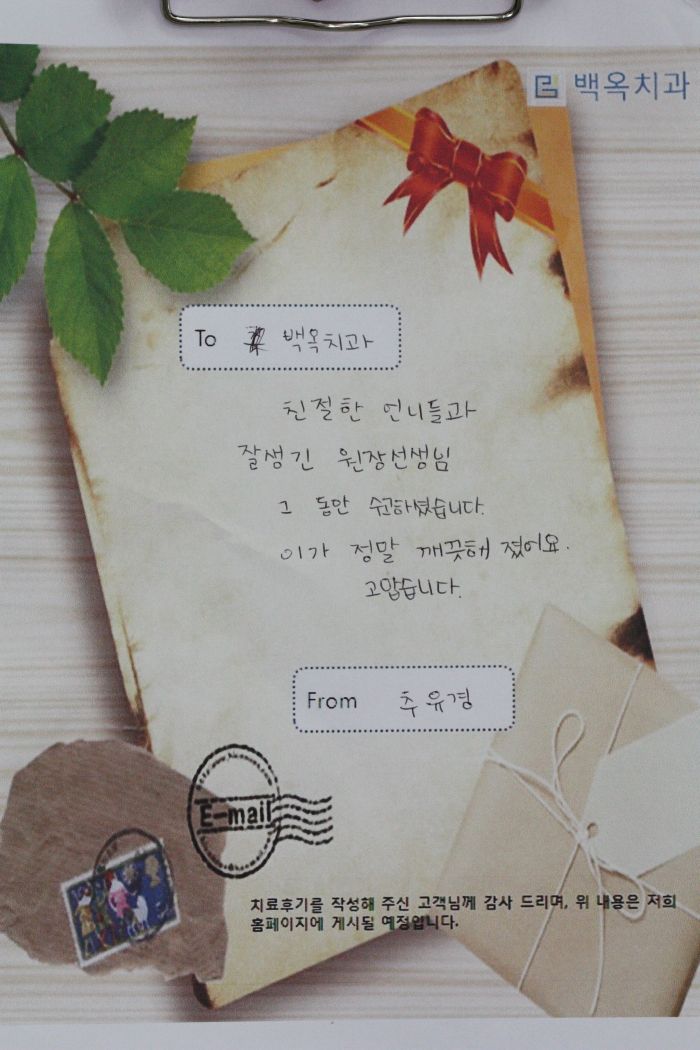 백옥치과
To 백옥치과
친절한 언니들과
잘생긴 원장선생님
그 동안 수고하셨습니다.
이가 정말 깨끗해 졌어요.
고맙습니다.
From 추유경
E-mail
치료후기를 작성해 주신 고객님께 감사 드리며, 위 내용은 저희
홈페이지에 게시될 예정입니다.